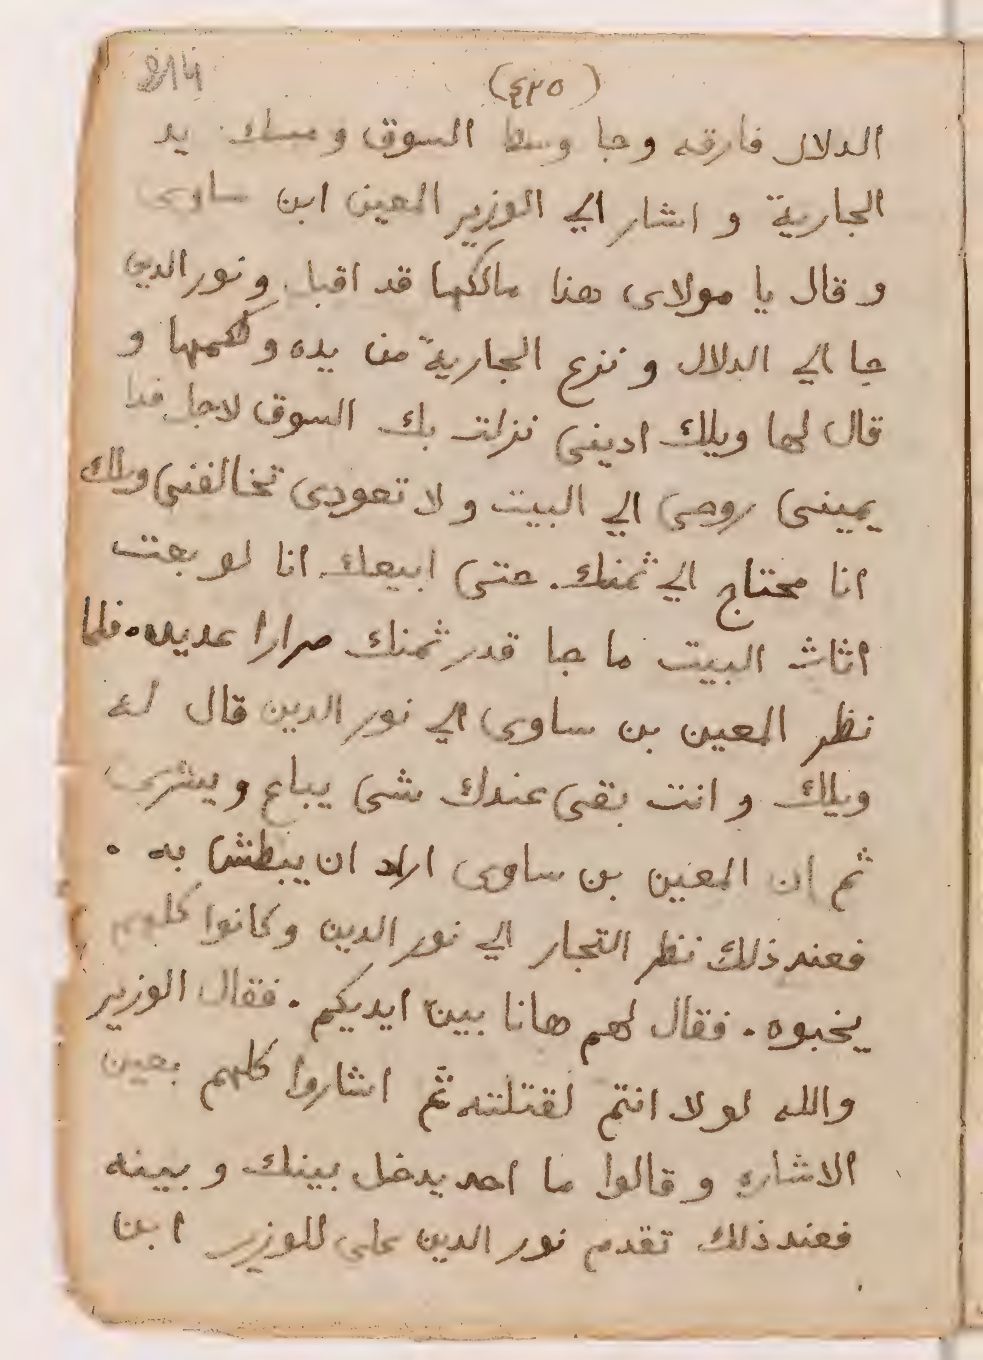 814
(٤٣٥)
الدلال فارقه وجا وسط السوق ومسك يد
الجارية و اشار الي الوزير المعين ابن ساوى
وقال يا مولاى هذا مالكها قد اقبل ونور الدين
جا الي الدلال ونزع الجارية من يده ولكمها و
قال لها ويلك ادينى نزلت بك السوق لاجل فدا
يمينى روحى الي البيت ولا تعودى تخالفنى ويلك
انا محتاج الي ثمنك حتى ابيعك انا لو بعت
اثاث البيت ما جا قدر ثمنك مرارا عديده. فلما
نظر المعين بن ساوى الي نور الدين قال له
ويلك و انت بقى عندك شى يباع ويشترى
ثم ان المعين بن ساوى اراد ان يبطش به .
فعند ذلك نظر التجار الي نور الدين وكانوا كلهم
يحبوه. فقال لهم هانا بين ايديكم. فقال الوزير
والله لولا انتم لقتلته ثم اشاروا كلهم بعين
الاشاره وقالوا ما احد يدخل بينك و بينه
فعند ذلك تقدم نور الدين على للوزير ابن